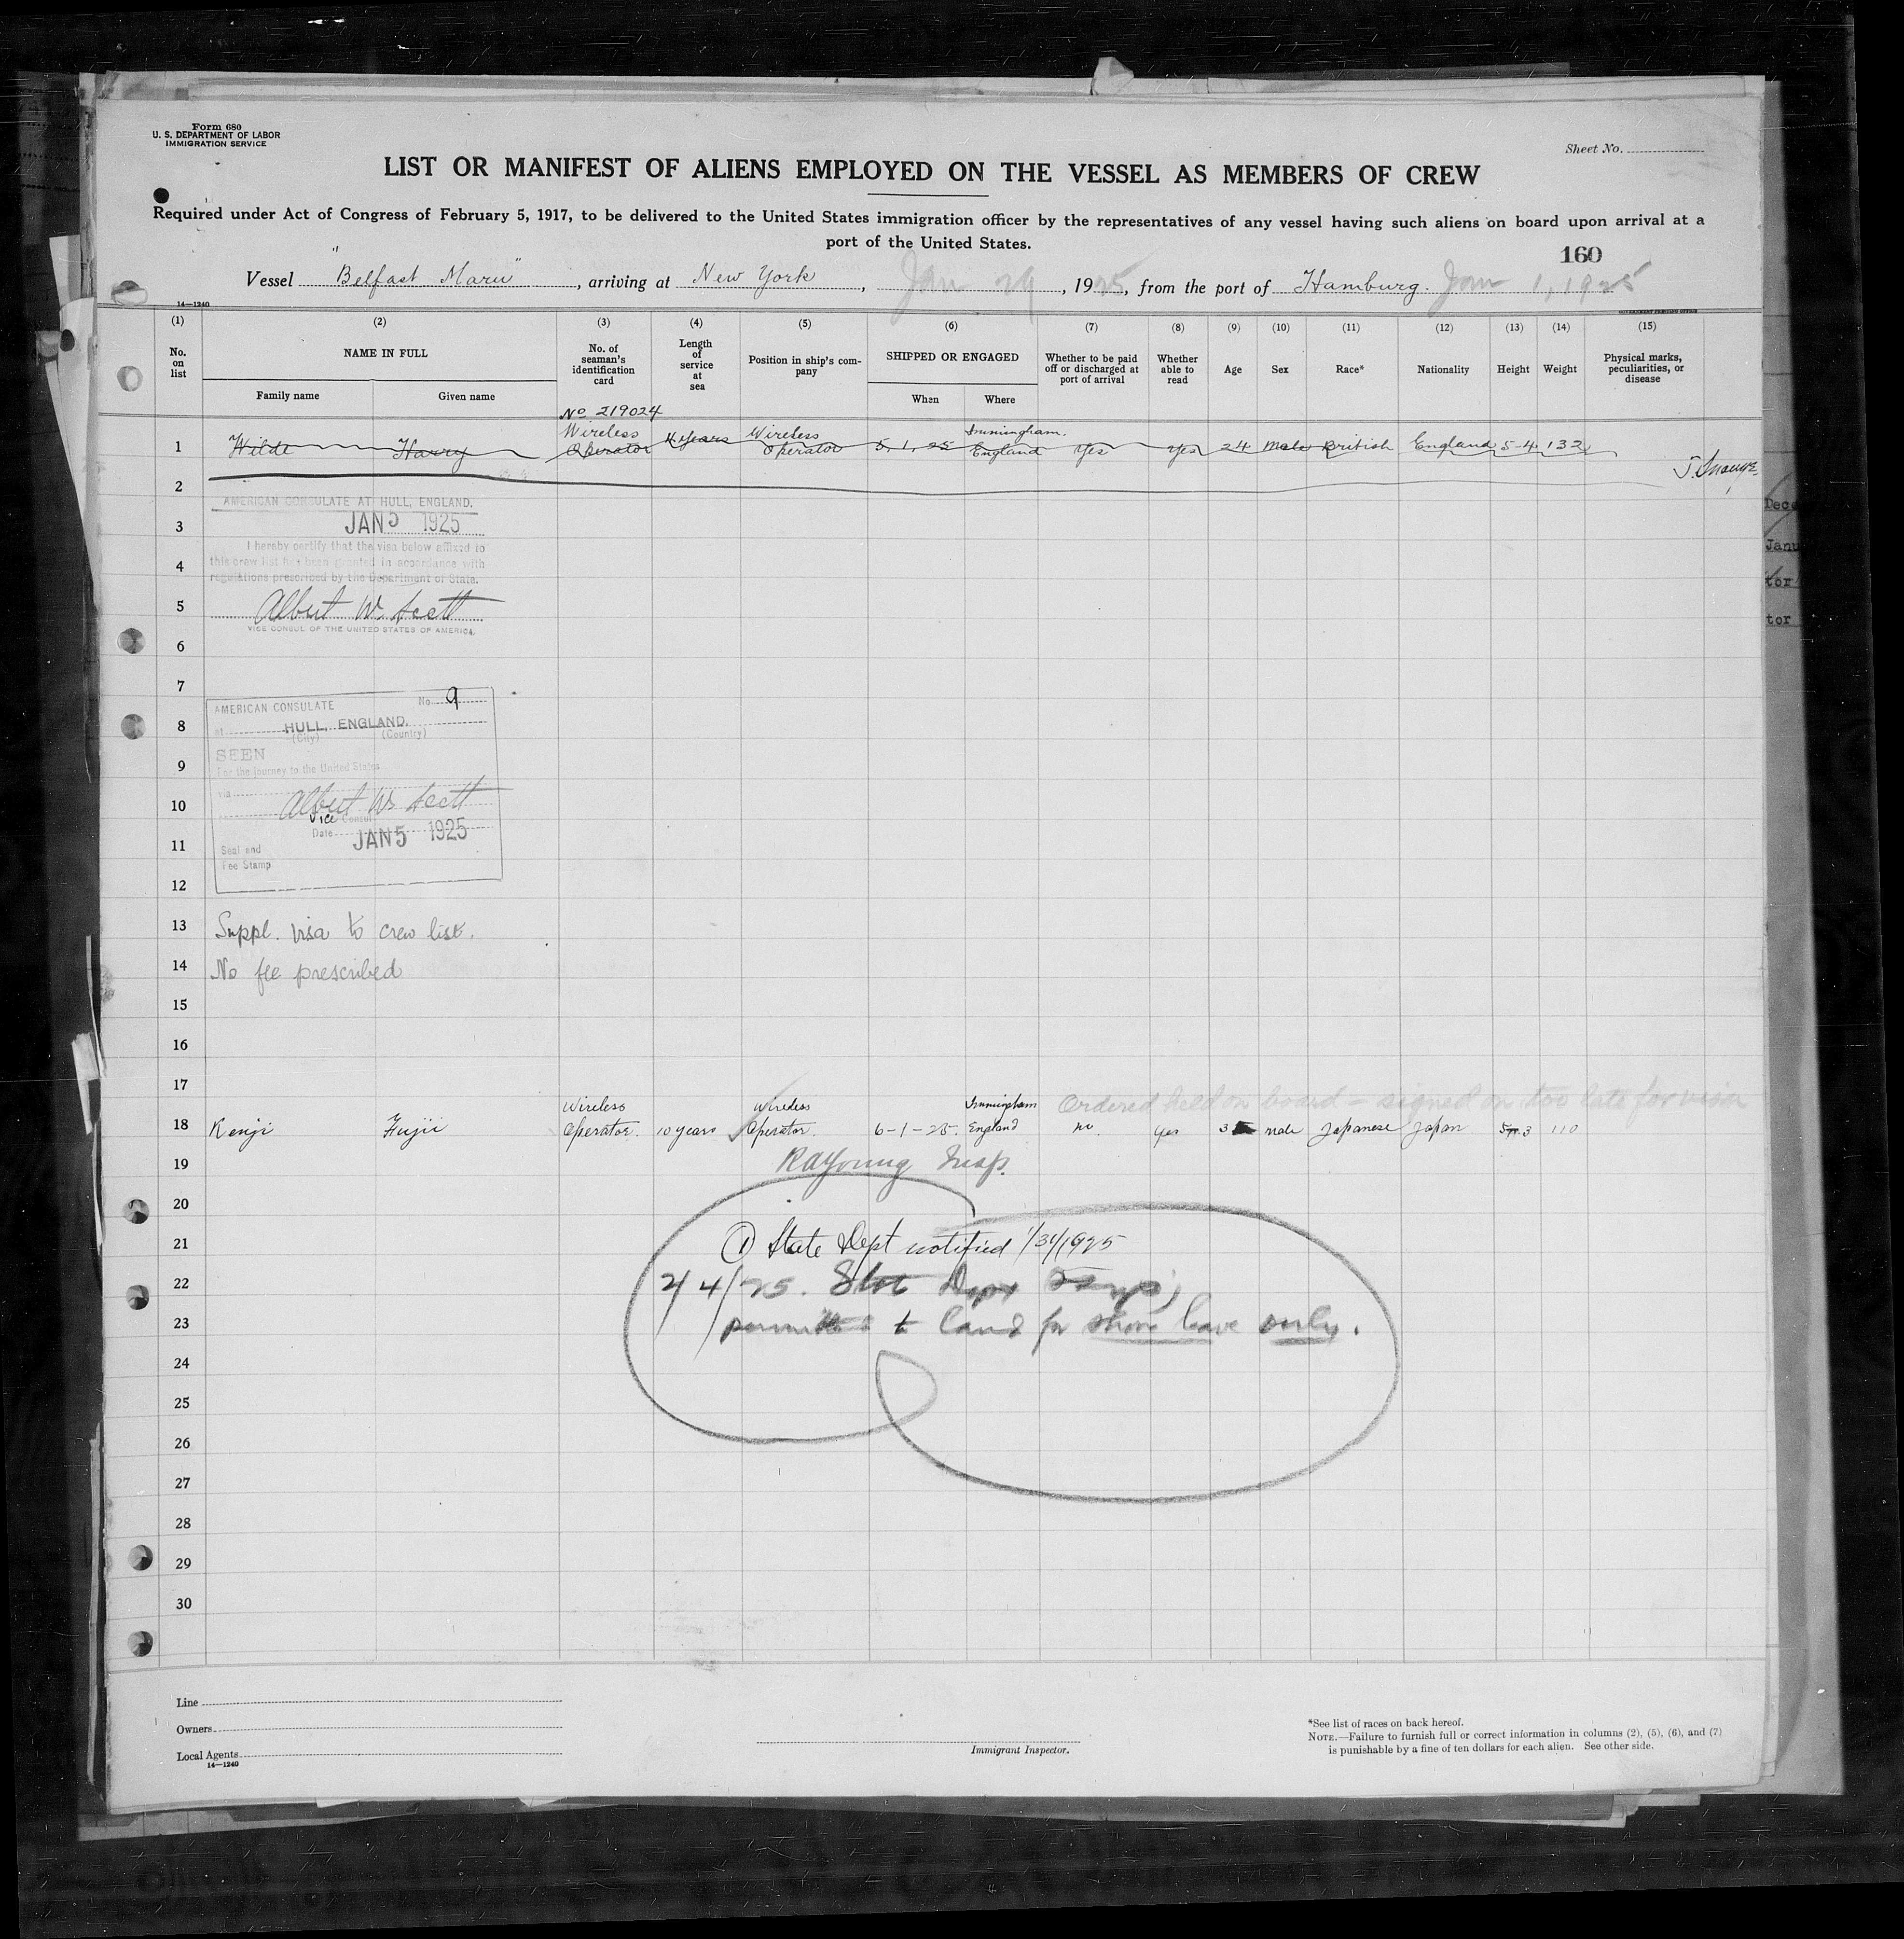 Form 680
U. S. DEPARTMENT OF LABOR
IMMIGRATION SERVICE
Sheet No.
LIST OR MANIFEST OF ALIENS EMPLOYED ON THE VESSEL AS MEMBERS OF CREW
Required under Act of Congress of February 5, 1917, to be delivered to the United States immigration officer by the representatives of any vessel having such aliens on board upon arrival at a
port of the United States.
160
Vessel "Belfast Maru", arriving at New York, Jan 29, 1925, from the port of Hamburg. Jan 1, 1925
14—1240
GOVERNMENT PRINTING OFFICE
(1) (2) (3) (4) (5) (6) (7) (8) (9) (10) (11) (12) (13) (14) (15)
No. on list
NAME IN FULL
Family name
Given name
No. of seaman's identification card
Length of service at sea
Position in ship's company
SHIPPED OR ENGAGED
When
Where
Whether to be paid off or discharged at port of arrival
Whether able to read
Age
Sex
Race*
Nationality
Height
Weight
Physical marks, peculiarities, or disease
No 219024
1 Wilde Harry Wireless Operator 4 years Wireless Operator 5.1.25 Immingham. England Yes Yes 24 Male British England 5-4 132
2
AMERICAN CONSULATE AT HULL, ENGLAND.
3
JAN 5 1925
I hereby certify that the visa below affixed to
4
this crew list has been granted in accordance with
regulations prescribed by the Department of State.
5
Albert W. Scott
VICE CONSUL OF THE UNITED STATES OF AMERICA.
6
7
AMERICAN CONSULATE No. 9
8
at HULL, ENGLAND.
(City) (Country)
SEEN
9
For the journey to the United States
via
10
Albert W. Scott
Vice Consul
Date JAN 5 1925
11
Seal and
Fee Stamp
12
13 Suppl. visa to crew list.
14 No fee prescribed
15
16
17
Ordered held on board – signed on too late for visa
18 Kenji Fujii Wireless Operator. 10 years Wireless Operator. 6-1-25. Immingham England no. yes male Japanese Japan 110
19 RAYoung Insp.
20
21 ① State Dept notified 1/31/1925
22 2/4/25. State Dept
23 permitted to land for shore leave only.
24
25
26
27
28
29
30
Line
Owners
Local Agents
14—1240
Immigrant Inspector.
*See list of races on back hereof.
NOTE.—Failure to furnish full or correct information in columns (2), (5), (6), and (7)
is punishable by a fine of ten dollars for each alien. See other side.
Dec
Janu
tor
tor